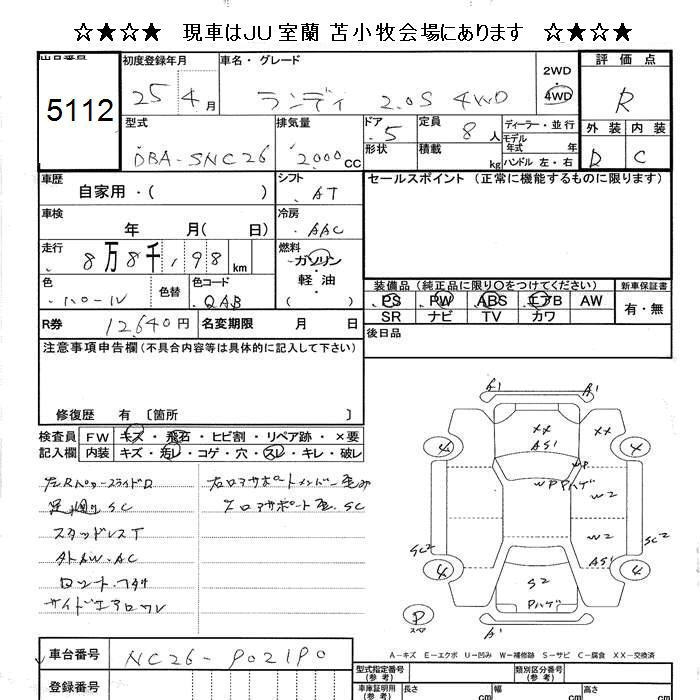 ☆★☆★ 現車はJU室蘭 苫小牧会場にあります ☆★☆★
5112
初度登録年月
25年 4月
車名・グレード
ランディ 2.0S 4WD
2WD
4WD
評価点
R
外装 内装
D C
型式
DBA-SNC26
排気量
2000 CC
ドア
5
形状
定員
8人
積載
kg
ディーラー・並行
モデル年式 年
ハンドル 左・右
車歴
自家用・( )
シフト
AT
車検
年 月( 日)
冷房
AAC
走行
8万8千,198 km
燃料
ガソリン
軽・油
( )
色
パール
色替
色コード
QAB
R券 12,640円
名変期限 月 日
セールスポイント (正常に機能するものに限ります)
装備品(純正品に限り○をつけてください)
PS PW ABS エアB AW
SR ナビ TV カワ
新車保証書
有・無
後日品
注意事項申告欄(不具合内容等は具体的に記入して下さい)
修復歴 有〔箇所 〕
検査員記入欄
FW キズ・飛石・ヒビ割・リペア跡・×要
内装 キズ・汚レ・コゲ・穴・スレ・キレ・破レ
SC
スタッドレスT
AC
A1 A1
XX
AS1
XX
4 4
WP
WP Pハゲ
W2
W2
SC2 SC2
AS1
4 4
S2
Pハゲ
P
スペア
A1
A-キズ E-エクボ U-凹み W-補修跡 S-サビ C-腐食 XX-交換済
車台番号 NC26-P021P0
登録番号
型式指定番号(参考)
類別区分番号(参考)
車庫証明用(参考)
長さ cm
幅 cm
高さ cm